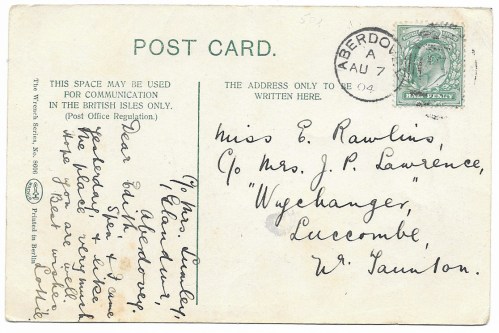 POST CARD.
THIS SPACE MAY BE USED
FOR COMMUNICATION
IN THE BRITISH ISLES ONLY.
(Post Office Regulation.)
THE ADDRESS ONLY TO BE
WRITTEN HERE.
ABERDOV
A
AU 7
04
HALF PENNY
The Wrench Series, No. 8696
Printed in Berlin
C/o Mrs. Lumley,
Glandwr,
Aberdovey.
Dear Edith,
& I came
yesterday, & like
the place very much
Hope you are well.
Best wishes
Lottie
Miss E. Rawlins,
C/o Mrs. J. P. Lawrence,
"Wychanger,
Luccombe,
Nr. Taunton.